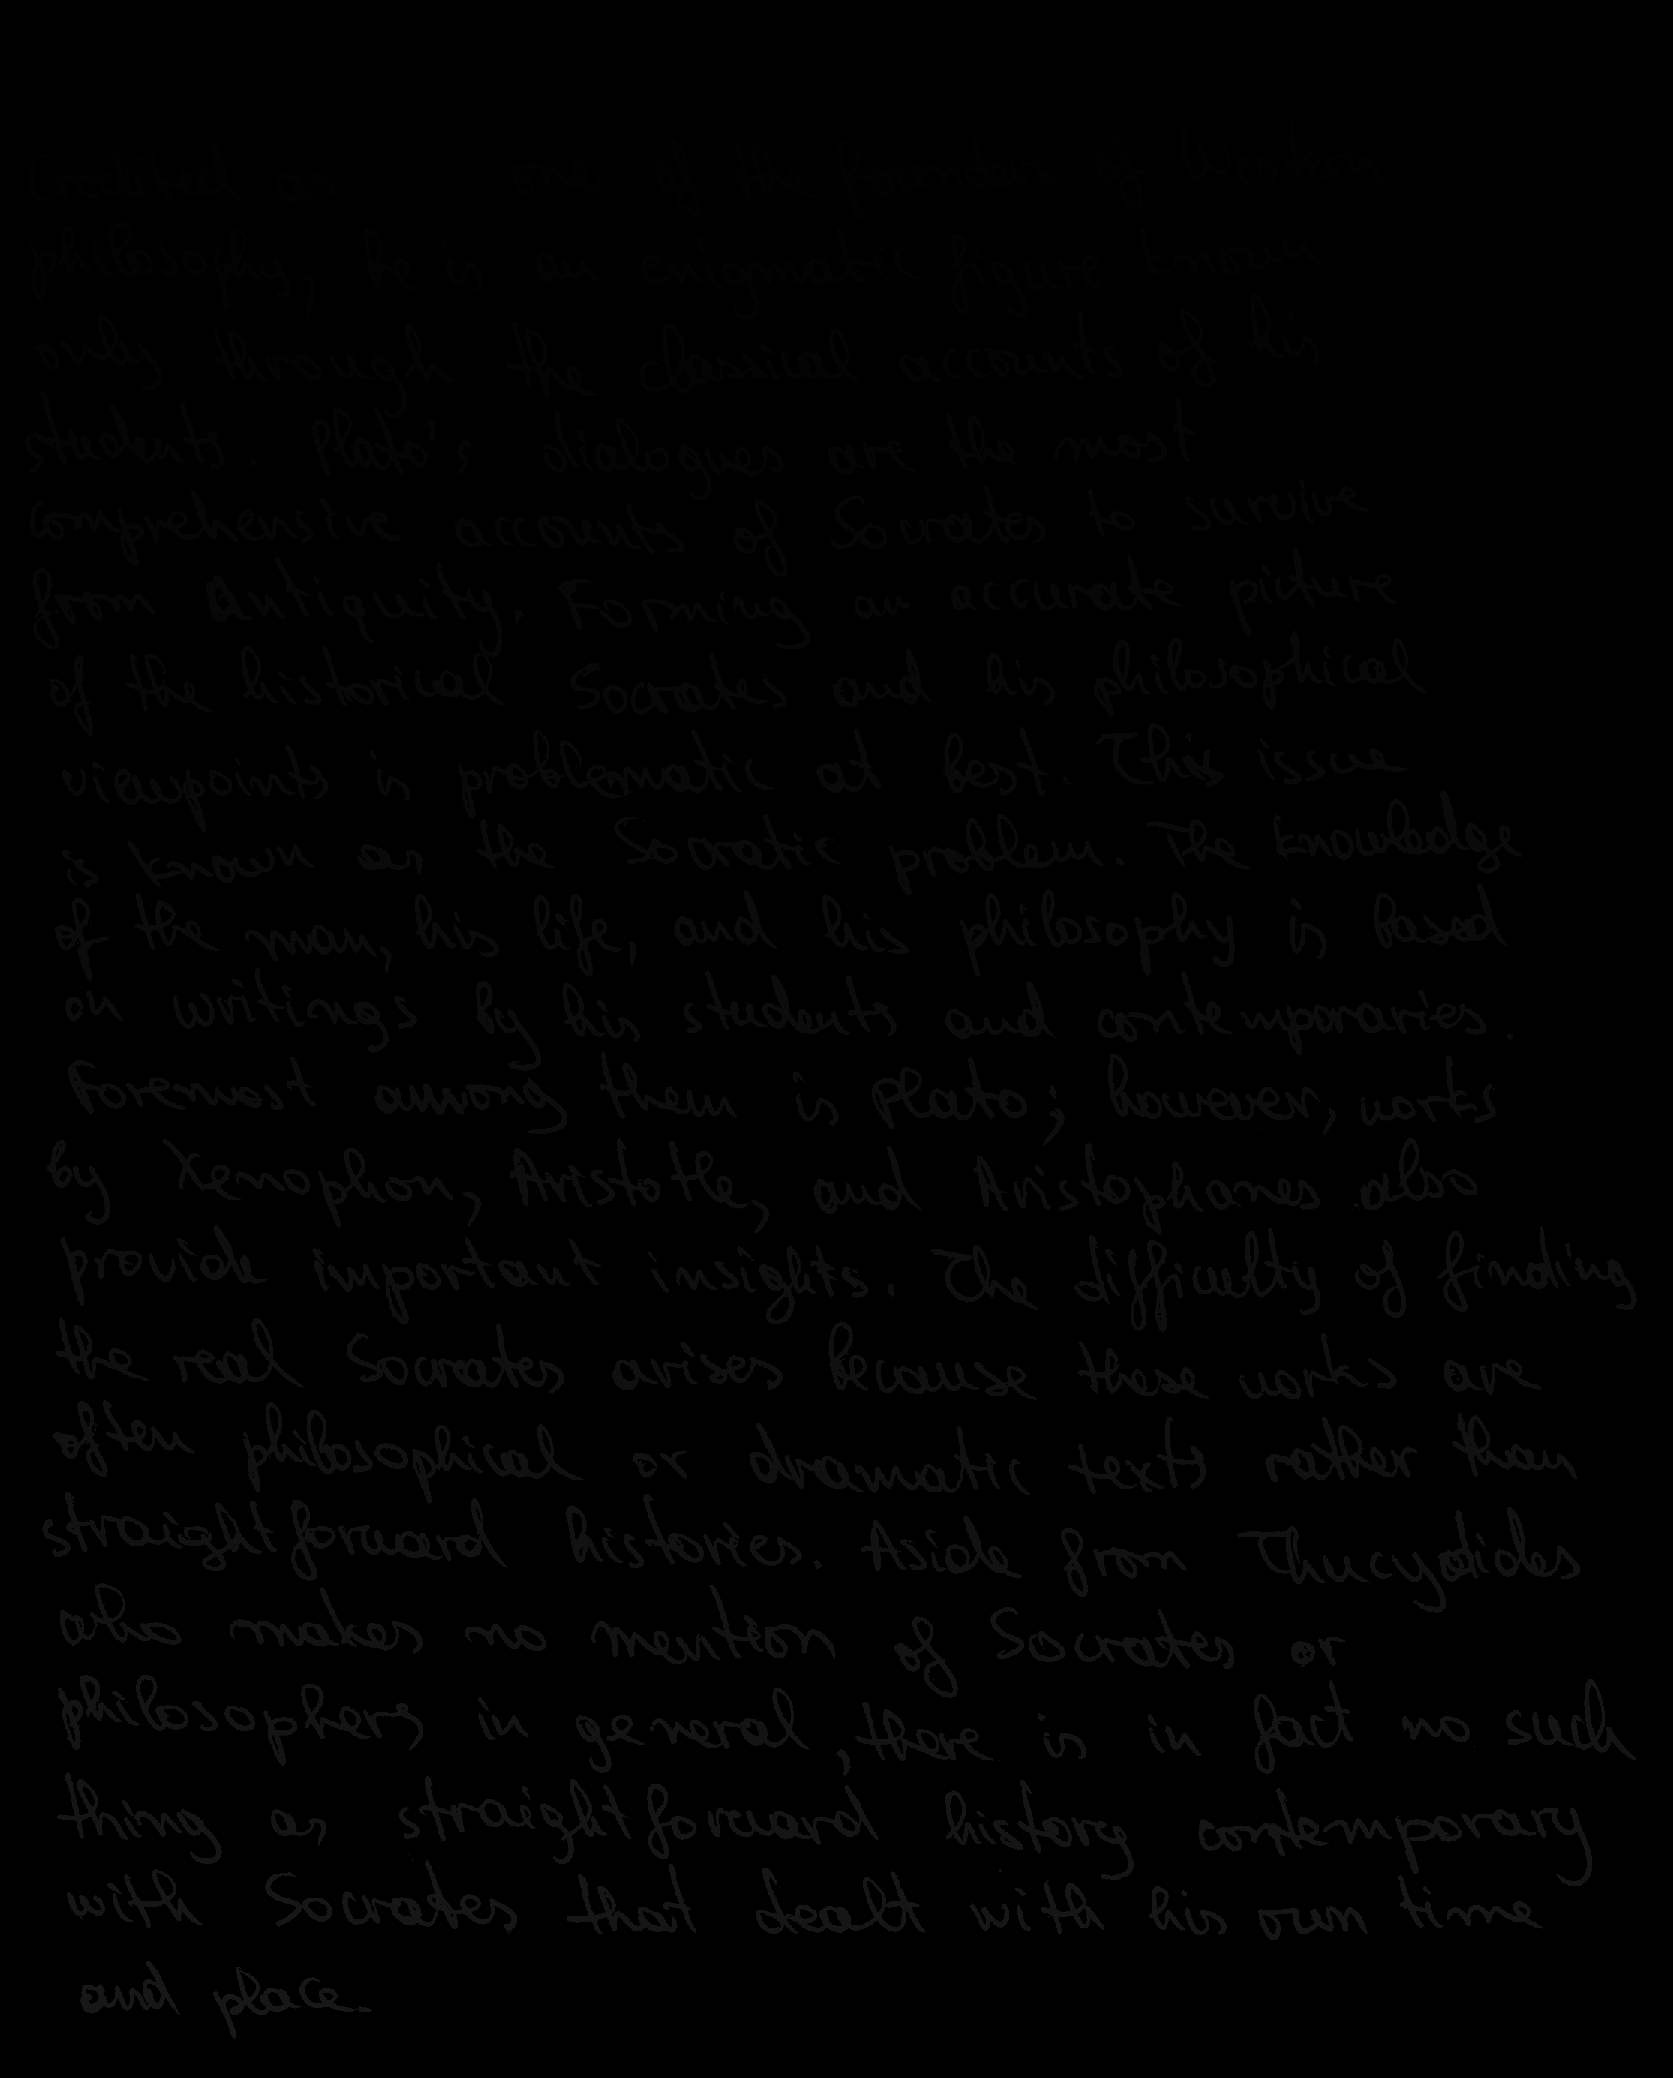 Socrates was a classical Greek philosopher
Credited as one of the founders of Western
philosophy, he is an enigmatic figure known
only through the classical accounts of his
students. Plato's dialogues are the most
comprehensive accounts of Socrates to survive
from antiquity. Forming an accurate picture
of the historical Socrates and his philosophical
viewpoints is problematic at best. This issue
is known as the Socratic problem. The knowledge
of the man, his life, and his philosophy is based
on writings by his students and contemporaries.
Foremost among them is Plato; however, works
by Xenophon, Aristotle, and Aristophanes also
provide important insights. The difficulty of finding
the real Socrates arises because these works are
often philosophical or dramatic texts rather than
straightforward histories. Aside from Thucydides
who makes no mention of Socrates or
philosophers in general, there is in fact no such
thing as straightforward history contemporary
with Socrates that dealt with his own time
and place.